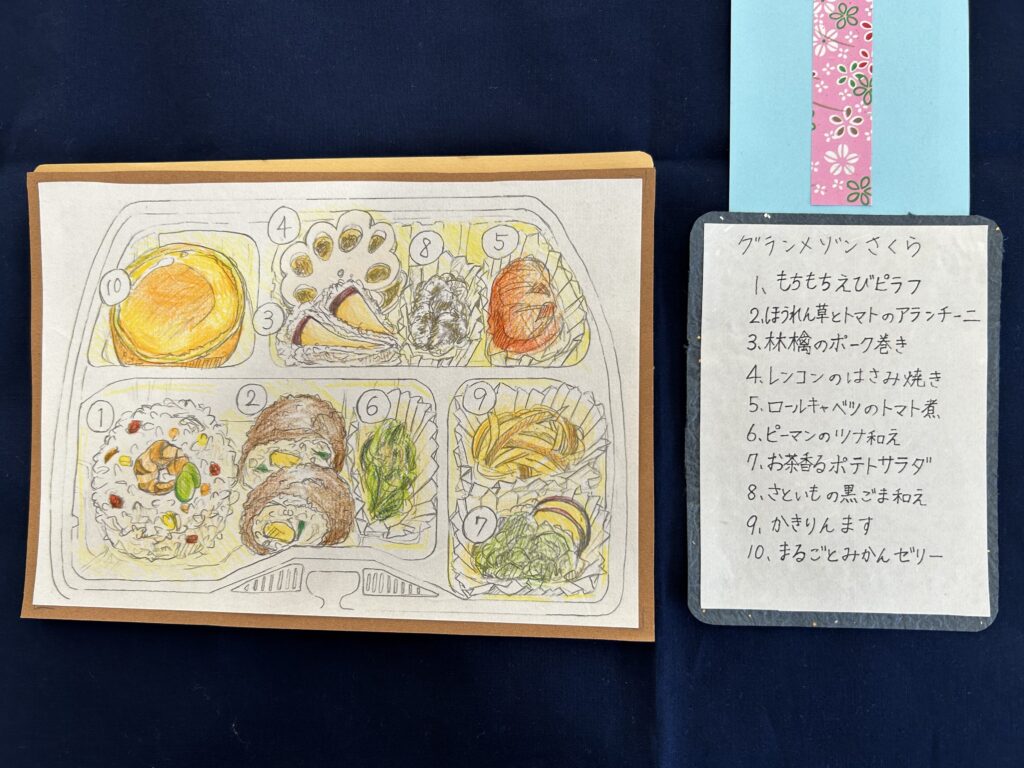 10
4
8
5
3
1
2
6
9
7
グランメゾンさくら
1、もちもちえびピラフ
2.ほうれん草とトマトのアランチーニ
3.林檎のポーク巻き
4.レンコンのはさみ焼き
5、ロールキャベツのトマト煮
6、ピーマンのツナ和え
7.お茶香るポテトサラダ
8、さといもの黒ごま和え
9、かきりんます
10、まるごとみかんゼリー